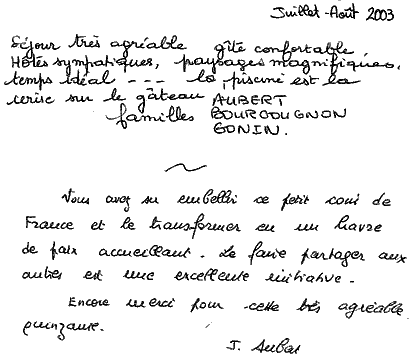 Juillet-Août 2003
Séjour très agréable gîte confortable,
Hôtes sympatiques, paysages magnifiques,
temps idéal --- la piscine est la
cerise sur le gâteau AUBERT
familles BOURGOUGNON
GONIN.
~
Vous avez su embellir ce petit coin de
France et le transformer en un havre
de paix accueillant. Le faire partager aux
autres est une excellente initiative.
Encore merci pour cette très agréable
quinzaine.
J. Aubert